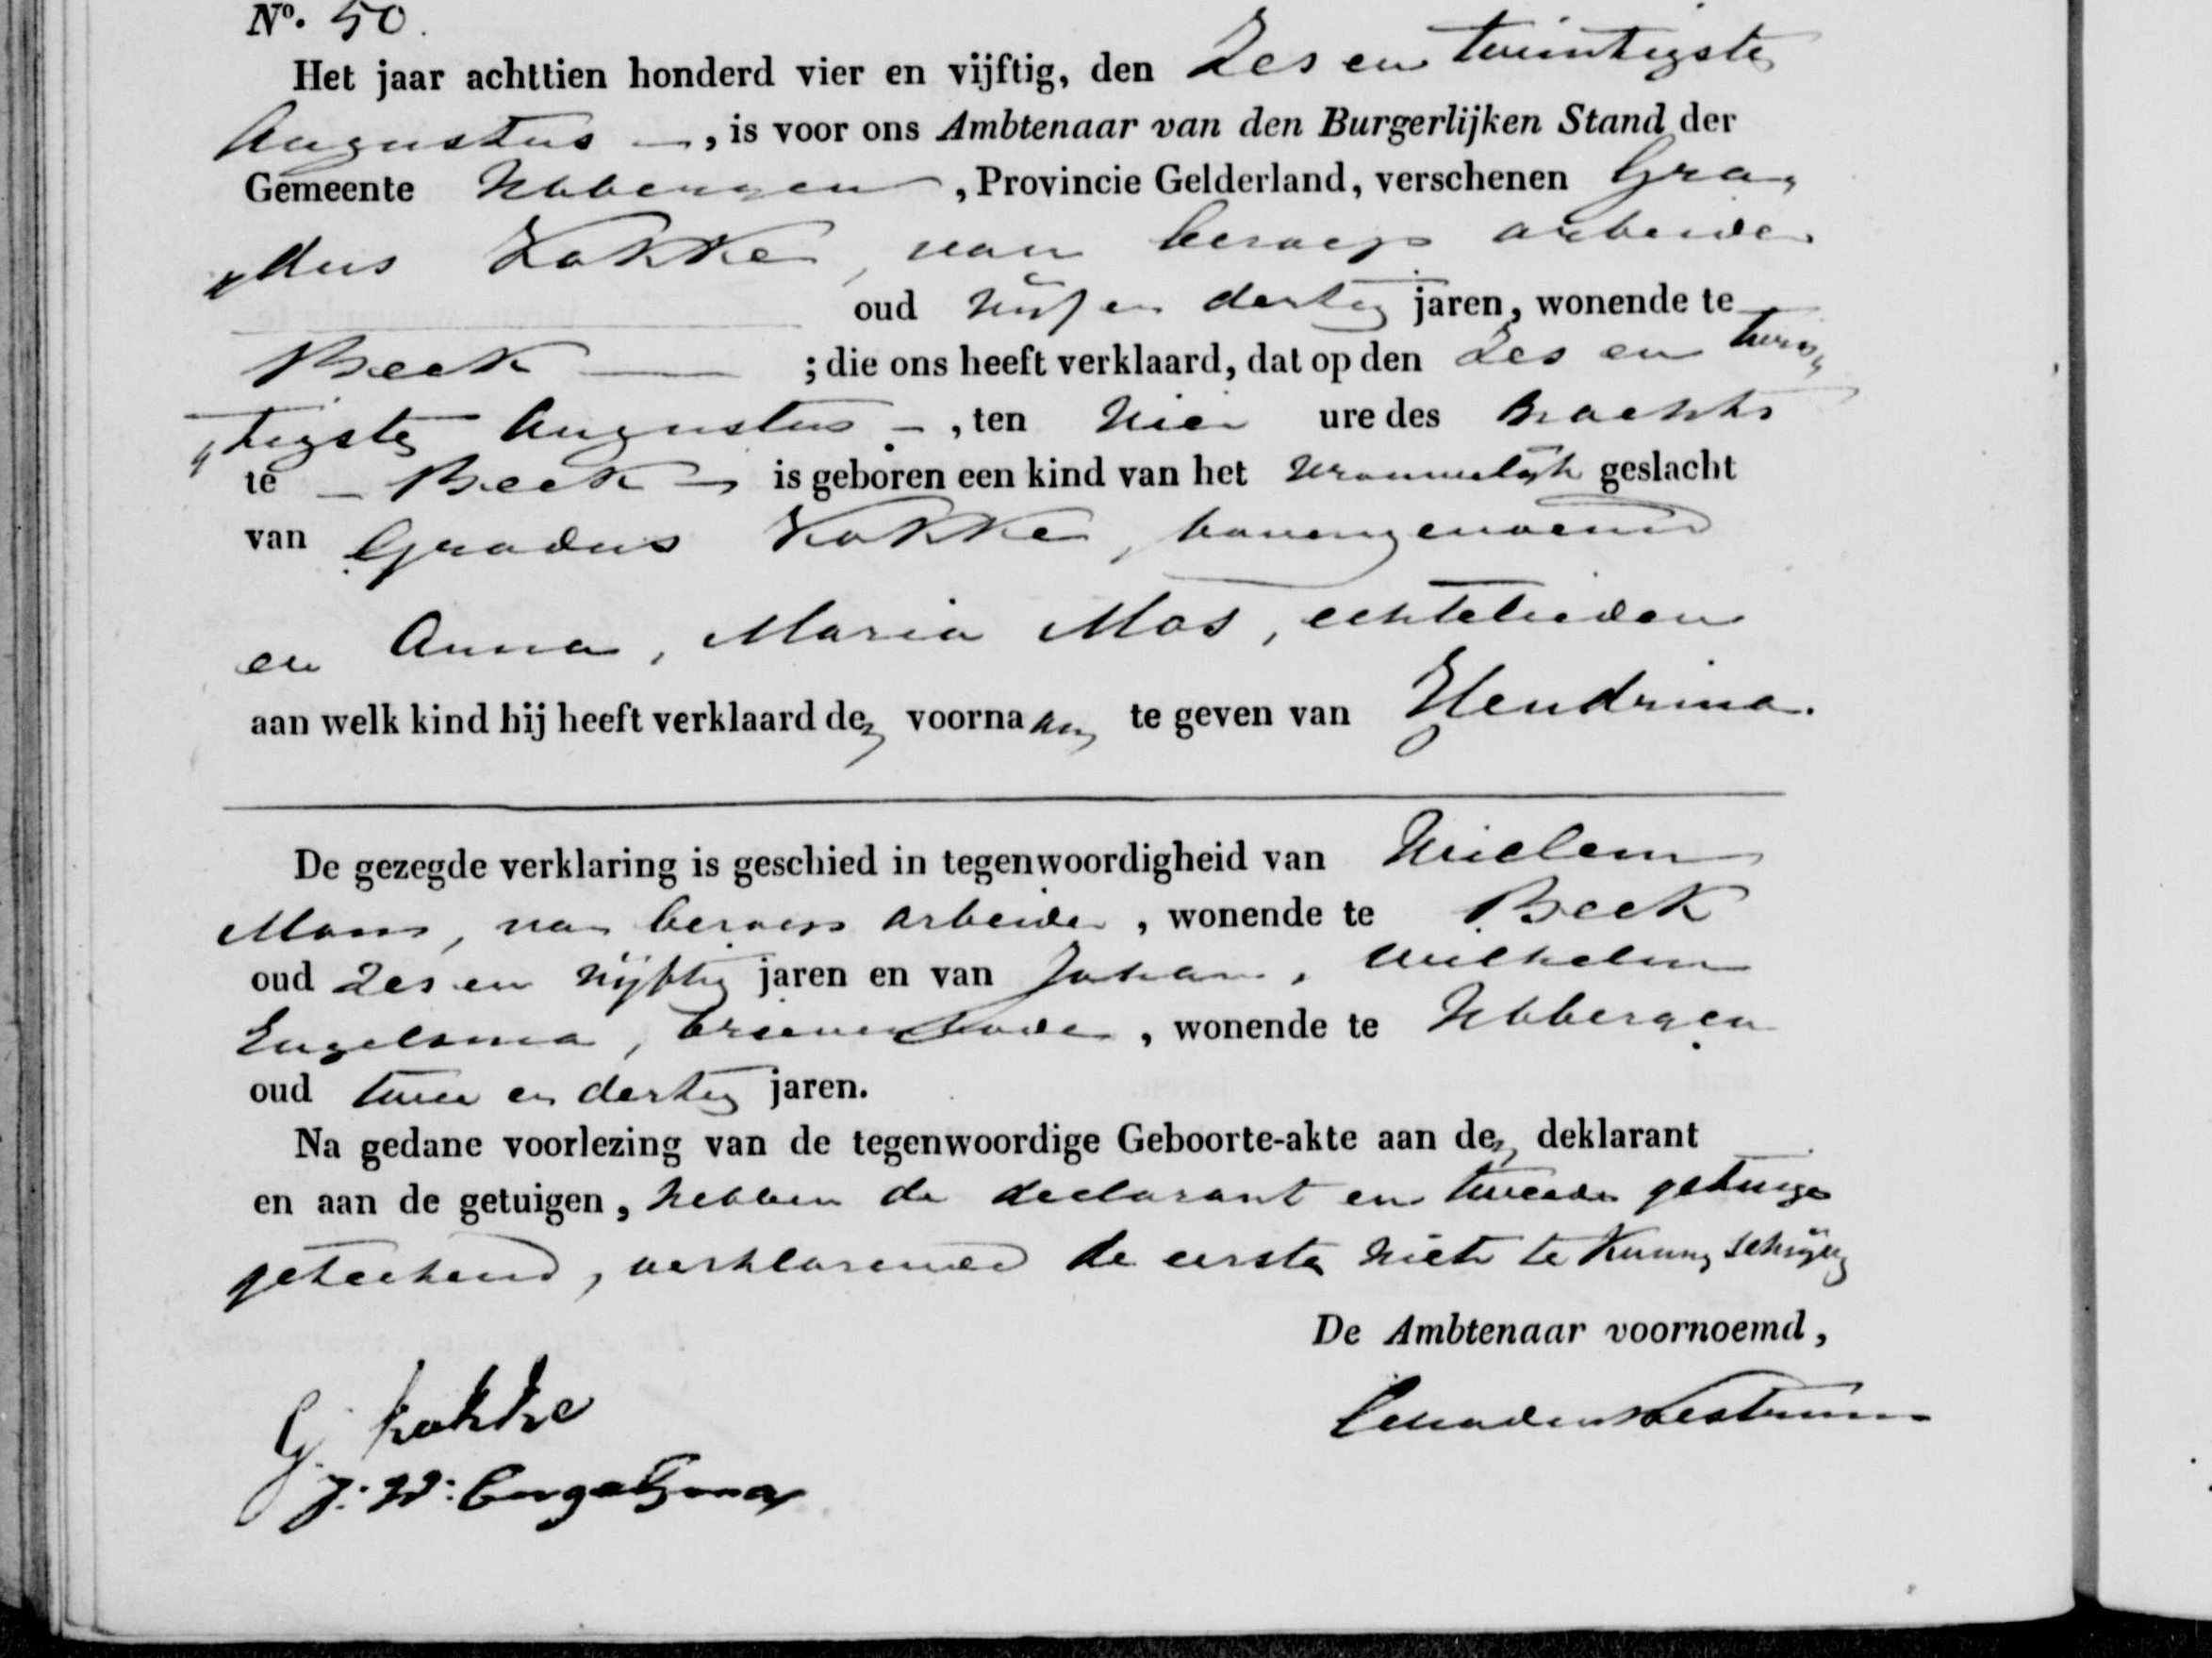 No. 50.
Het jaar achttien honderd vier en vijftig, den Zes en twintigste
Augustus —, is voor ons Ambtenaar van den Burgerlijken Stand der
Gemeente Ubbergen, Provincie Gelderland, verschenen Gra„
„dus Kokke, van beroep arbeider
oud vijf en dertig jaren, wonende te
Beek — ; die ons heeft verklaard, dat op den Zes en twin„
„tigste Augustus —, ten vier ure des nachts
te — Beek — is geboren een kind van het vrouwelijk geslacht
van Gradus Kokke, bovengenoemd
en Anna, Maria Mos, echtelieden
aan welk kind hij heeft verklaard den voornaam te geven van Hendrina.
De gezegde verklaring is geschied in tegenwoordigheid van Willem
Mans, van beroep arbeider, wonende te Beek
oud Zes en vijftig jaren en van Johan, Wilhelm
Engelsma, brievenbode, wonende te Ubbergen
oud twee en dertig jaren.
Na gedane voorlezing van de tegenwoordige Geboorte-akte aan den deklarant
en aan de getuigen, hebben de declarant en tweede getuige
geteekend, verklarende de eerste niet te kunnen schrijven
De Ambtenaar voornoemd,
G. Kokke
J: W: Engelsma